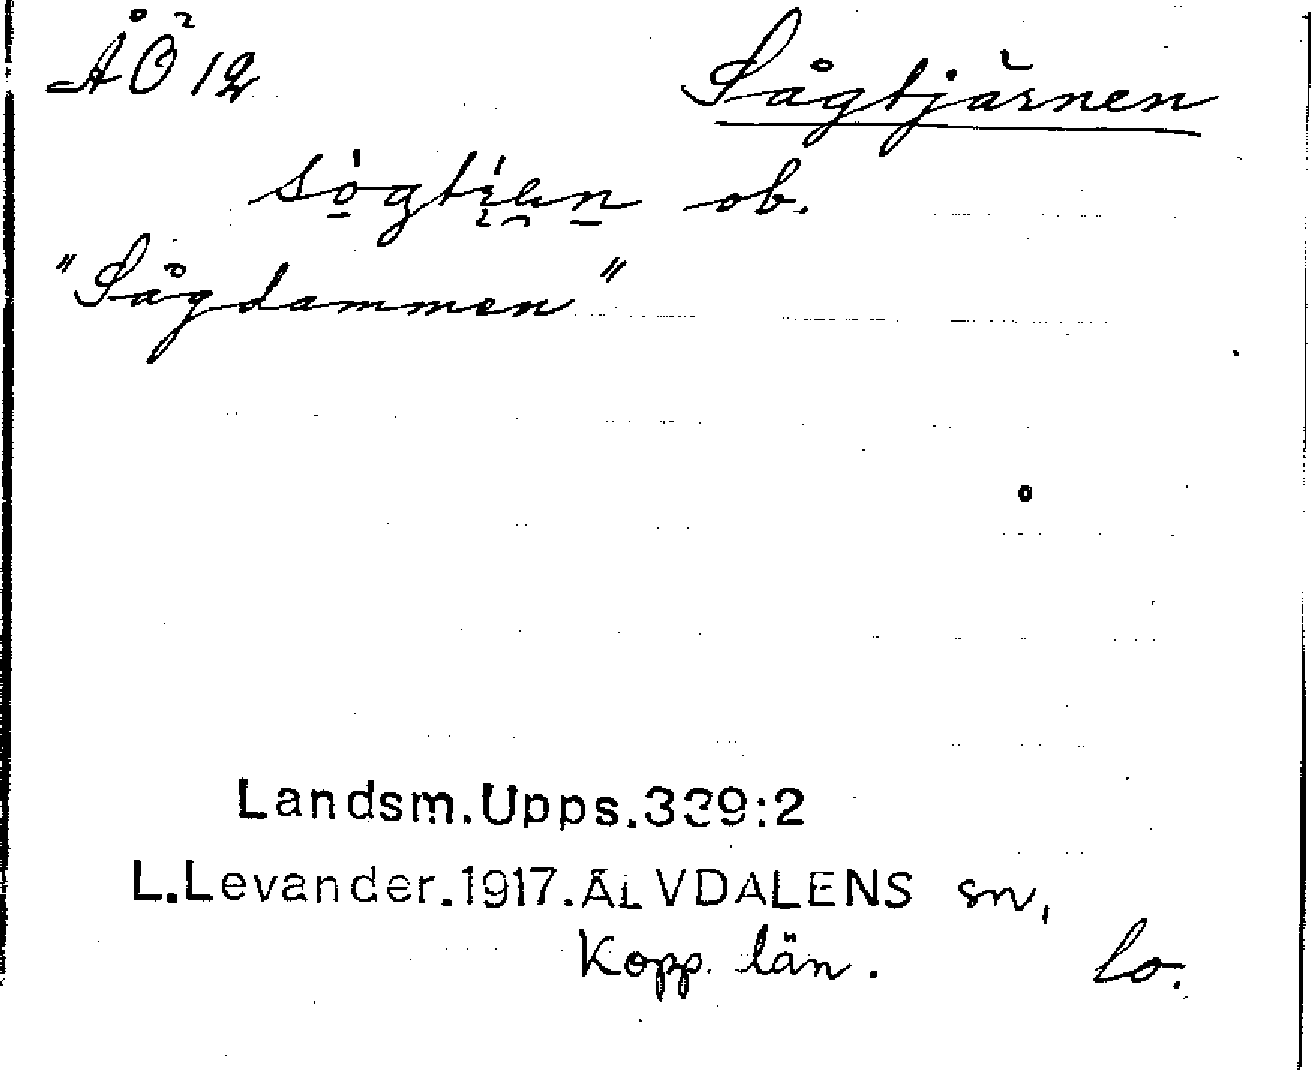 ÅÖ 12
Sågtjärnen
ob.
"Sågdammen"
Landsm.Upps.339:2
L.Levander.1917.ÄLVDALENS sn,
Kopp. län. lo.